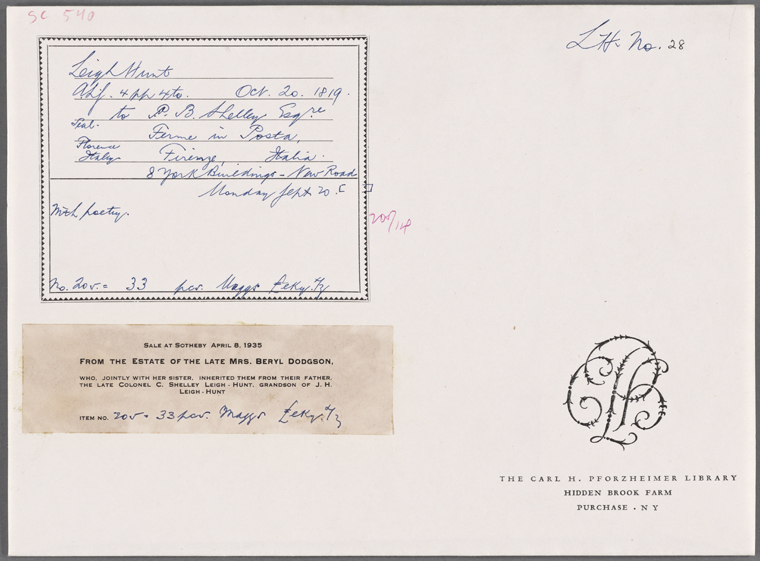 SC 540
LH. No. 28
Leigh Hunt
4 pp 4to. Oct. 20. 1819.
Seal. to P. B. Shelley Esqre
Ferme in Posta,
Florence
Italy Firenze, Italia.
8 York Buildings - New Road
Monday Sept 20. [ ]
poetry.
205/14
No. 205 = 33 per. Maggs
SALE AT SOTHEBY APRIL 8, 1935
FROM THE ESTATE OF THE LATE MRS. BERYL DODGSON,
WHO, JOINTLY WITH HER SISTER, INHERITED THEM FROM THEIR FATHER,
THE LATE COLONEL C. SHELLEY LEIGH-HUNT, GRANDSON OF J. H.
LEIGH-HUNT
ITEM NO. 205 = 33 per. Maggs
THE CARL H. PFORZHEIMER LIBRARY
HIDDEN BROOK FARM
PURCHASE · NY